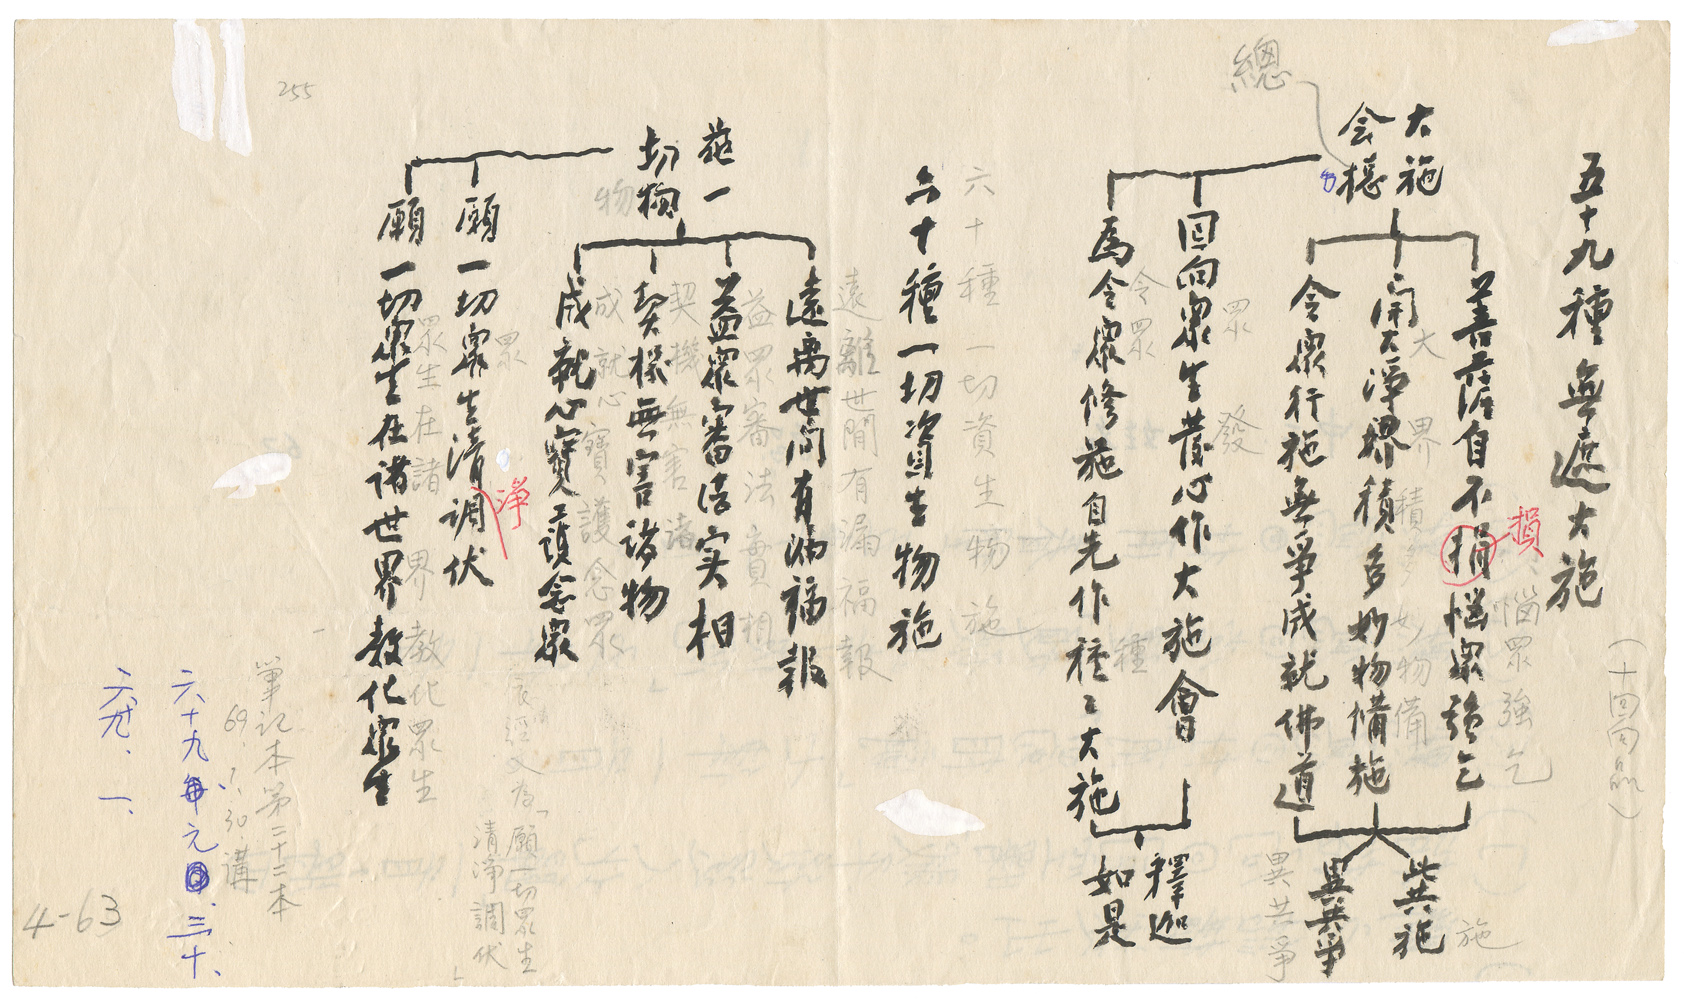 (十回向品)
五十九種無遮大施
損
大施
会穏
總
善薩自不捐惱眾強乞
惱眾強乞
開大淨堺積多妙物備施
大界積多妙物備
令眾行施無爭成就佛道
此共施
施
異共爭
異共爭
回向眾生發心作大施會
眾發
為令眾修施自先作種々大施
令眾
種
釋迦
如是
六十種一切資生物施
六十種一切資生物施
施一
切物
物
遠离世间有漏福報
遠離世間有漏福報
益眾審法实相
益眾審法實相
契機無害諸物
契機無害諸
成就心寶護念眾
成就心寶護念眾
願一切眾生清調伏
眾
淨
願一切眾生在諸世界教化眾生
眾生在諸界教化眾生
依經文為「願一切眾生
清淨調伏」
筆記本第二十二本
69.1.30.講
六十九年元.三十、
六九.一、
255
4-63